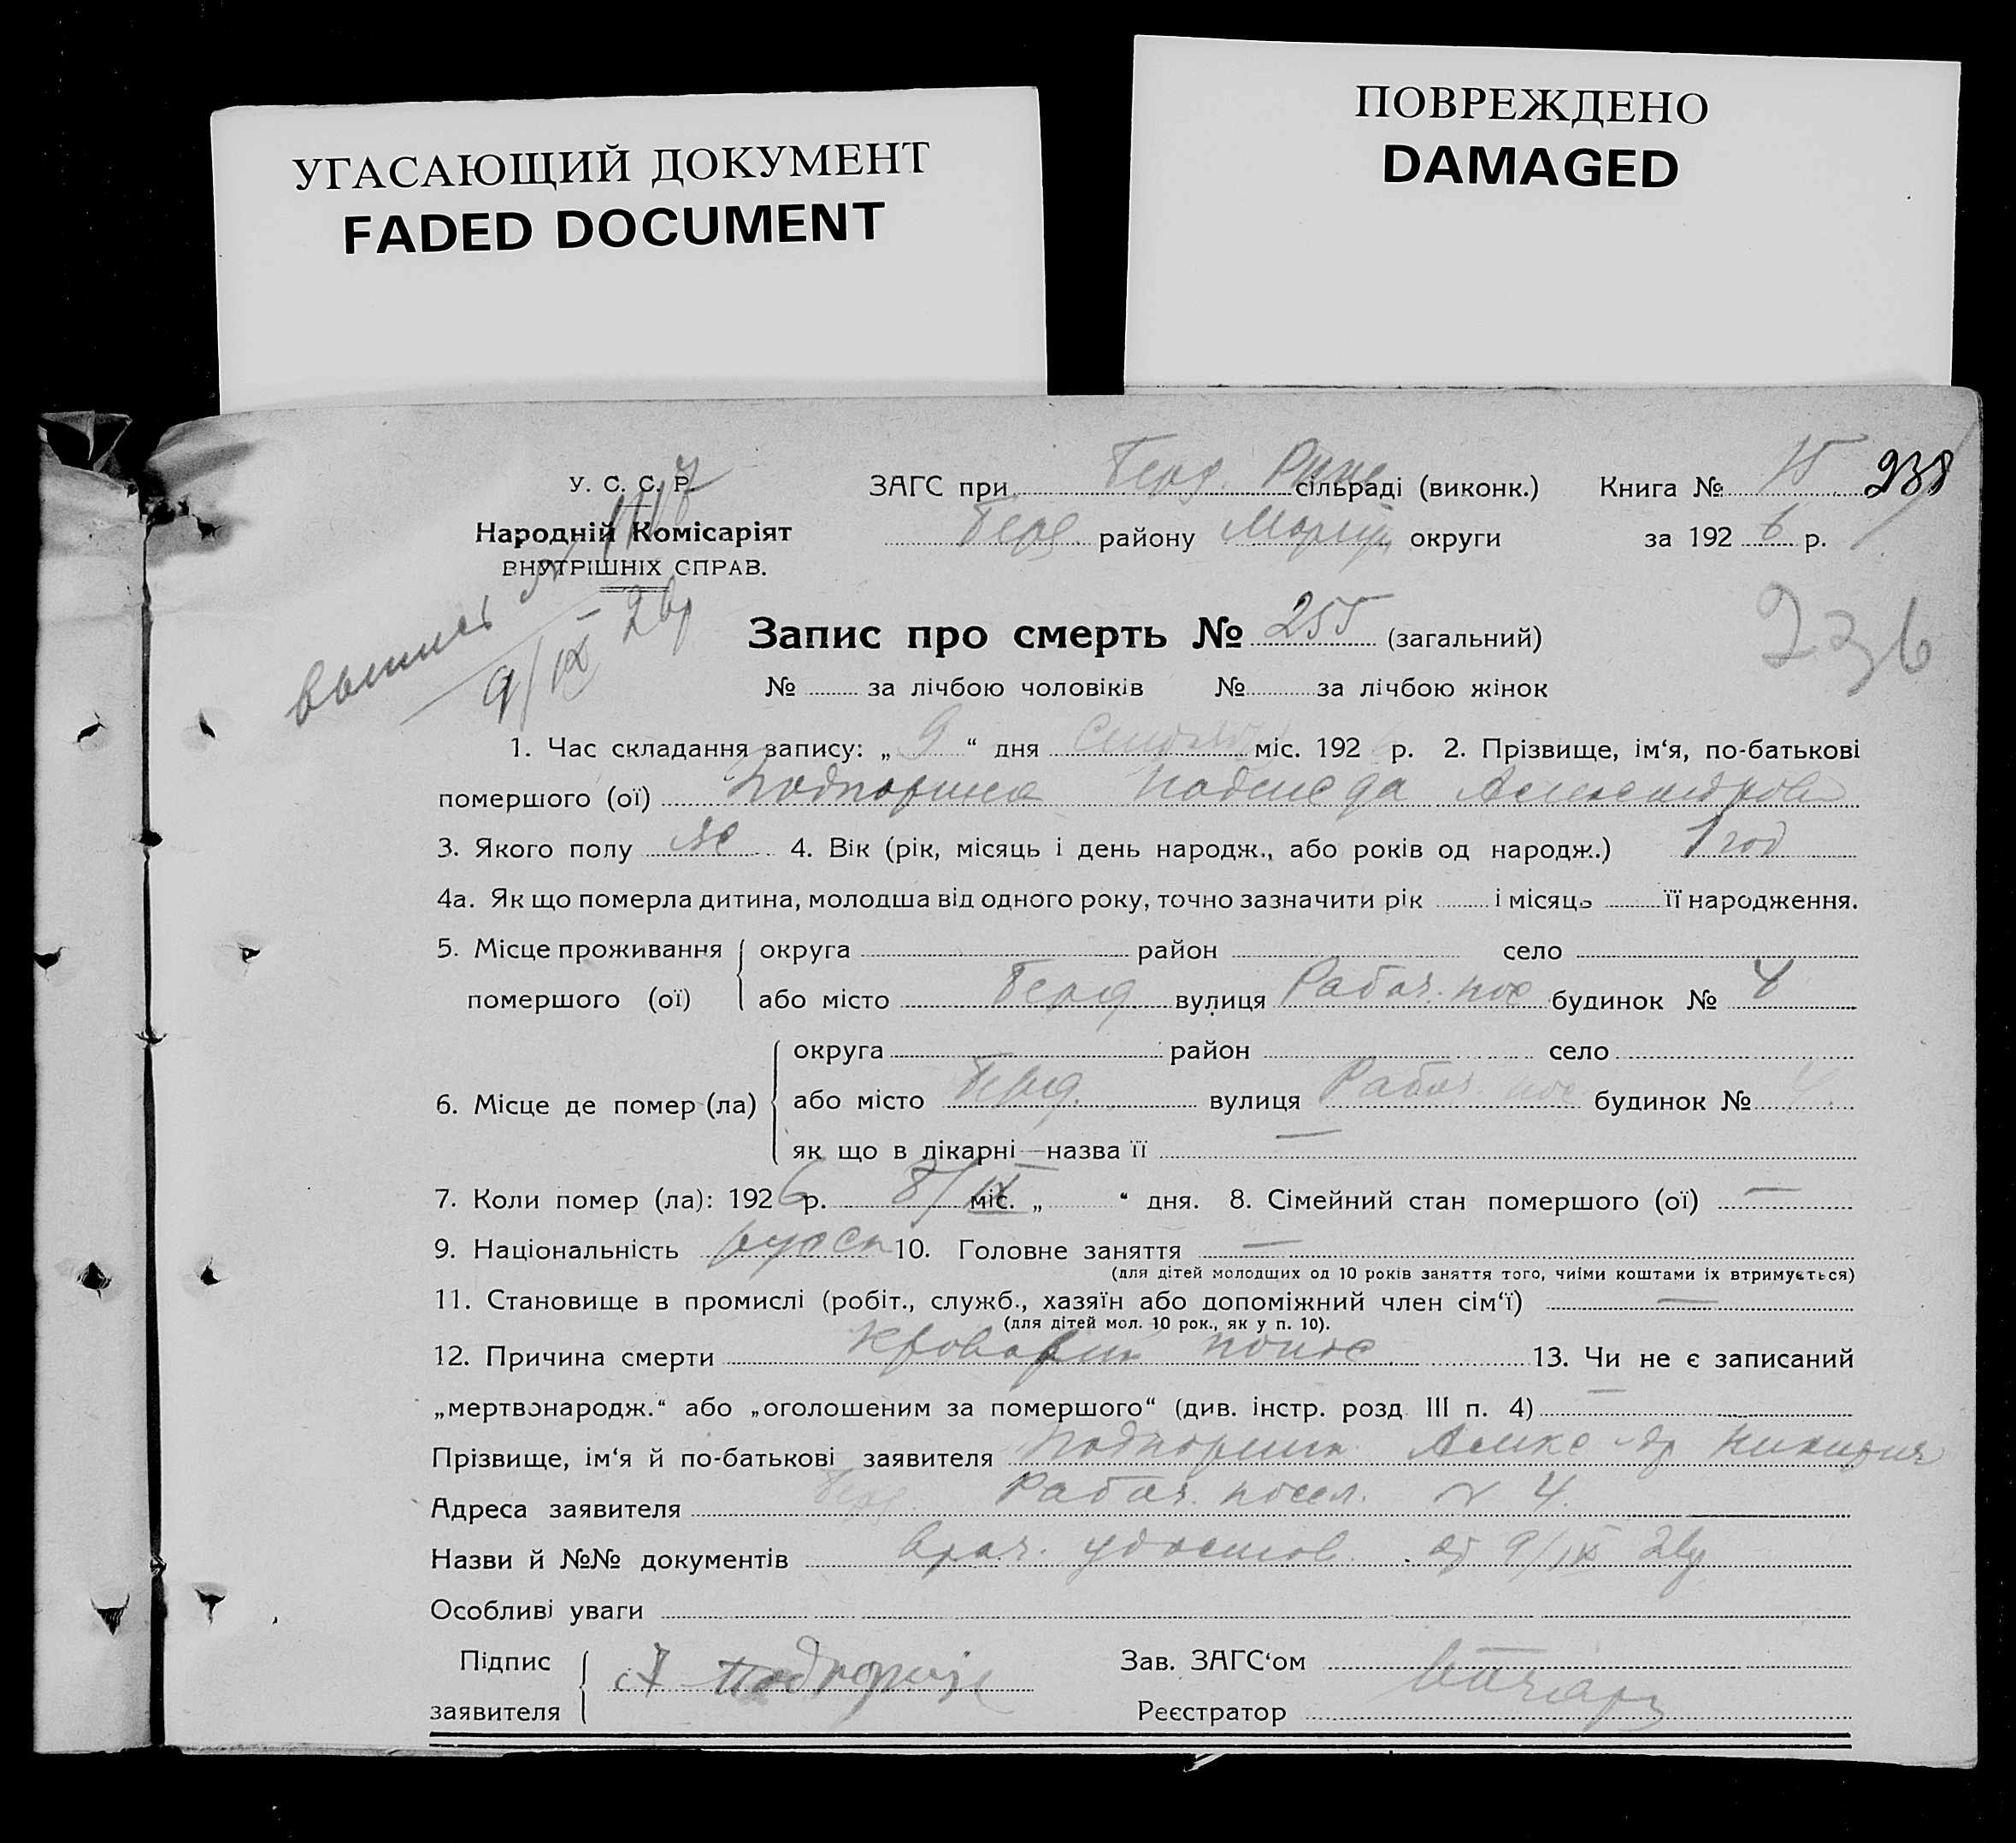 УГАСАЮЩИЙ ДОКУМЕНТ
FADED DOCUMENT
ПОВРЕЖДЕНО
DAMAGED
У. С. С. Р. ЗАГС при Берд. сільраді (виконк.) Книга № 238
Народній Комісаріят Берд районy Маріуп округи за 1926 р.
ВНУТРІШНІХ СПРАВ.
9/IX 26 г
236
Запис про смерть № 255 (загальний)
№ за лічбою чоловіків № за лічбою жінок
1. Час складання запису: „ 9 “ дня Сентяб міс. 192 р. 2. Прізвище, ім‘я, по-батькові
помершого (ої) Подпорина Надежда Александров
3. Якого полу ж 4. Вік (рік, місяць і день народж., або років од народж.) 1 год
4а. Як що померла дитина, молодша від одного року, точно зазначити рік і місяць її народження.
5. Місце проживання округа район село
помершого (ої) або місто Берд. вулиця Рабоч. пос будинок № 4
округа район село
6. Місце де помер (ла) або місто Берд. вулиця Рабоч. пос будинок № 4.
як що в лікарні—назва її —
7. Коли помер (ла): 1926 р. 8/IX міс. „ “ дня. 8. Сімейний стан помершого (ої) —
9. Національність русск 10. Головне заняття —
(для дітей молодших од 10 років заняття того, чиїми коштами їх втримується)
11. Становище в промислі (робіт., служб., хазяїн або допоміжний член сім‘ї) —
(для дітей мол. 10 рок., як у п. 10).
12. Причина смерти Кровавый понос 13. Чи не є записаний
„мертвонародж.“ або „оголошеним за помершого“ (див. інстр. розд III п. 4) —
Прізвище, ім‘я й по-батькові заявителя Подпорин Алекс др
Адреса заявителя Берд. Рабоч. посел. № 4.
Назви й №№ документів врач. удостов. от 9/IX 26 г
Особливі уваги
Підпис Зав. ЗАГС‘ом
заявителя А Подпорин Реєстратор